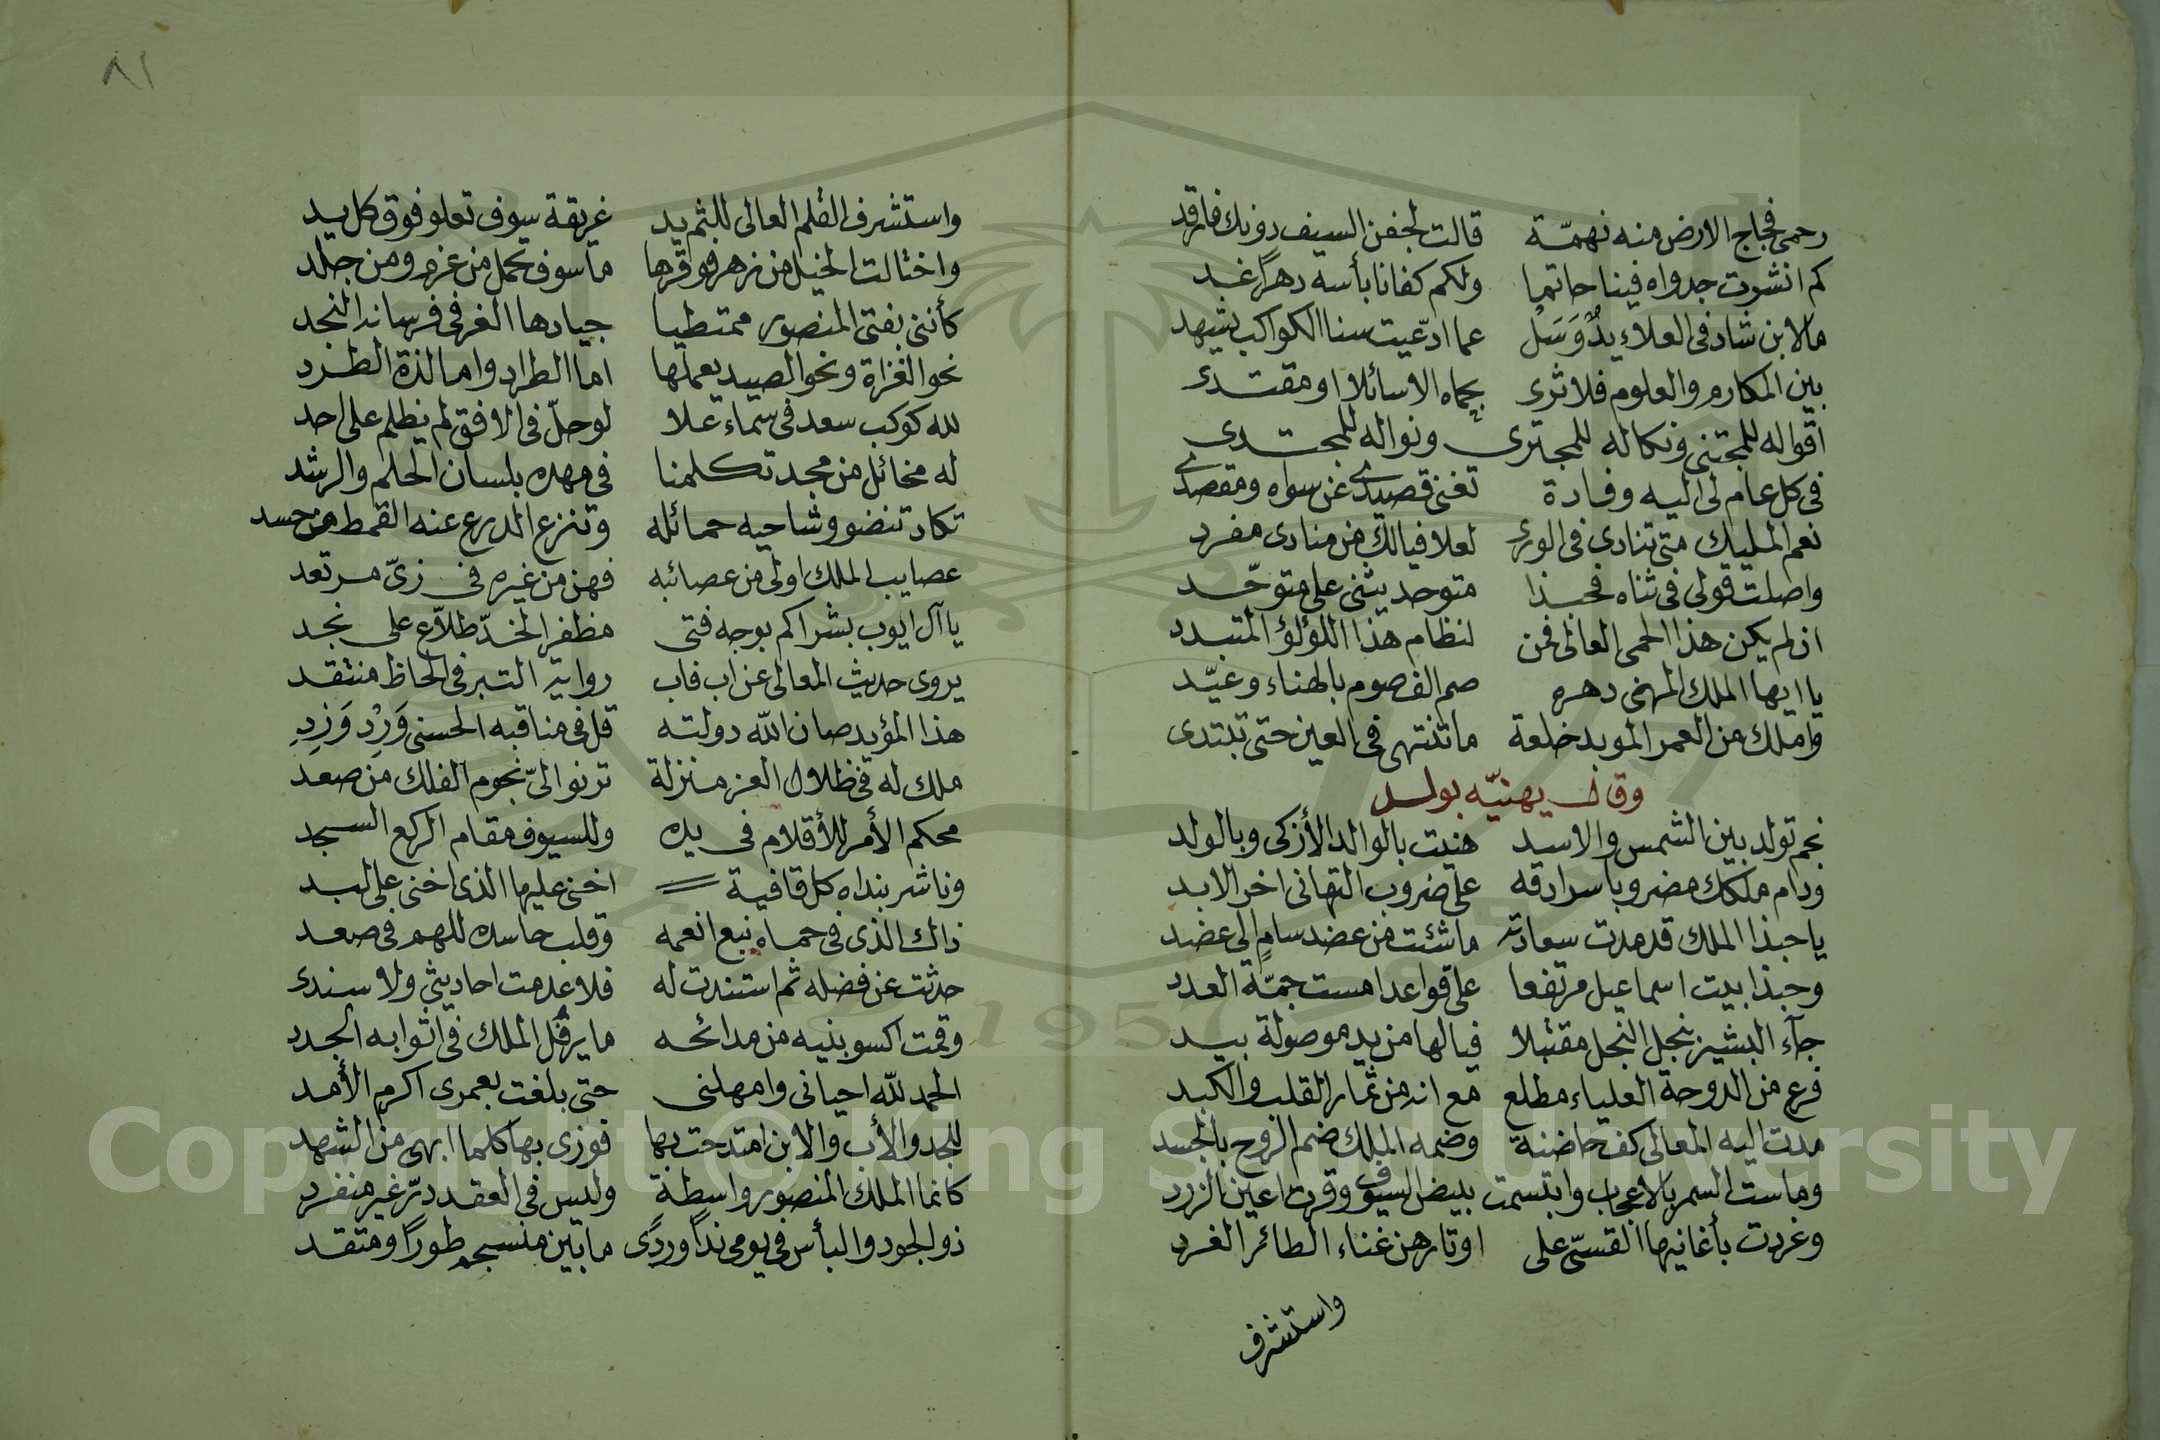 رحمى فجاج الارض منه نهمّة قالت لجفن السيف دونك فارقد
كم انشرت جدواه فينا حاتما ولكم كفانا بأسه دهرًا غبد
مالابن شاد فى العلاء يدٌ وَسَلْ عما ادّعيت سنا الكواكب يشهد
بين المكارم والعلوم فلا ثرى بحماه الا سائلا او مقتدى
اقواله للمجتنى ونكاله للمجترى ونواله للمجتدى
فى كل عام لى اليه وفادة تغنى قصيدى عن سواه ومقصدى
نعم المليك متى تنادى فى الورى لعلا فيالك من منادى مفرد
واصلت قولى فى ثناه فحبذا متوحد يثنى على متوحّد
ان لم يكن هذا الحمى العالى فمن لنظام هذا اللؤلؤ المتبدد
يا ايها الملك المهنى دهره صم الف صوم بالهناء وعيّد
واملك من العمر الموبد خلعة ما تنتهى فى العين حتى تبتدى
وقال يهنيّه بولد
نجم تولد بين الشمس والاسد هنيت بالوالد الأزكى وبالولد
ودام ملكك مضروبا سرادقه على ضروب التهانى اخر الابد
يا حبذا الملك قد مدت سعادته ما شئت من عضد سامٍ الى عضد
وحبذا بيت اسماعيل مرتفعا على قواعد امست جمّة العدد
جآء البشير بنجل النجل مقتبلا فيالها من يد موصولة بيد
فرع من الدوحة العلياء مطلع مع انه من ثمار القلب والكبد
مدت اليه المعالى كف حاضنة وضمه الملك ضم الروح بالجسد
وماست السمر بالاعجاب وابتسمت بيض السيوف وقرت اعين الزرد
وغردت بأغانيها القسىّ على اوتارهن غناء الطائر الغرد
واستشرف
٨١
واستشرف القلم العالى للثم يد غريقة سوف تعلو فوق كل يد
واختالت الخيل من زهر فواقرها ما سوف تحمل من عزم ومن جلد
كأننى بفتى المنصور ممتطيا جيادها الغر فى فرسانه النجد
نحو الغزاة ونحو الصيد يعملها اما الطراد واما لذة الطرد
لله كوكب سعد فى سماء علا لو حلّ فى الافق لم يظلم على احد
له مخائل من مجد تكلمنا فى مهده بلسان الحلم والرشد
تكاد تنضو وشاحيه حمائله وتنزع الدرع عنه القمط من حسد
عصايب الملك اولى من عصائبه فهن من غيره فى زىّ مرتعد
يا آل ايوب بشراكم بوجه فتى مظفر الخدّ طلاّع على نجد
يروى حديث المعالى عن اب فاب رواية التبر فى الحاظ منتقد
هذا المؤيد صان الله دولته قل فى مناقبه الحسنى وَرِد وَزِدِ
ملك له فى ظلال العز منزلة ترنو الىّ نجوم الفلك من صعد
محكم الأمر للأقلام فى يده وللسيوف مقام الركع السجد
وناشر بنداه كل قافية اخنى عليها الذى اخنى على لبد
ذاك الذى فى حماه نبع انعمه وقلب حاسده للهم فى صعد
حدثت عن فضله ثم استندت له فلا عدمت احاديثى ولا سندى
وقمت اكسو بنيه من مدائحه ما يرفُل الملك فى اثوابه الجدد
الحمد لله احيانى وامهلنى حتى بلغت بعمرى اكرم الأمد
للجد والأب والابن امتدحت بها فوزى بها كلما ابهى من الشهد
كانما الملك المنصور واسطة وليس فى العقد درّ غير منفرد
ذو الجود والبأس فى يومى نداً وردًى ما بين منسجم طورًا ومتقد
Copyright © King Saud University
1957